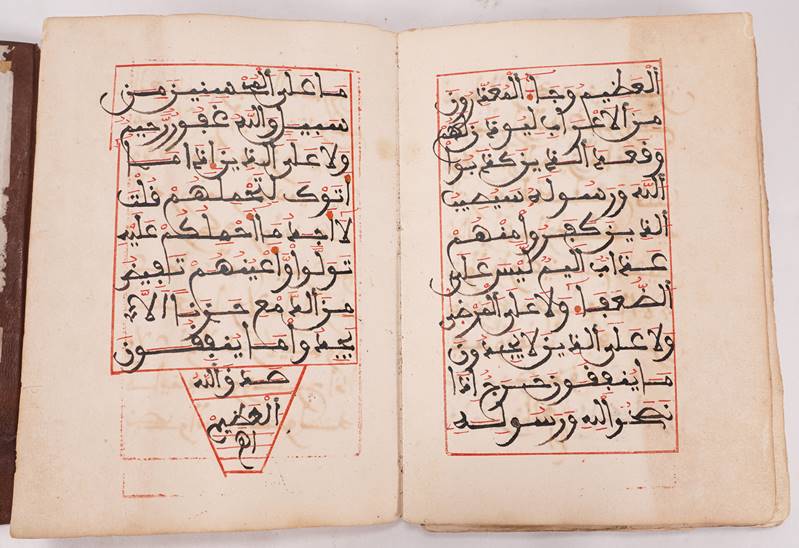 العظيم وجاء المعذرون
من الاعراب ليوذن لهم
وقعد الذين كذبوا
الله ورسوله سيصيب
الذين كفروا منهم
عذاب اليم ليس على
الضعفاء ولا على المرضى
ولا على الذين لا يجدون
ما ينفقون حرج اذا
نصحوا لله ورسوله
ما على المحسنين من
سبيل والله غفور رحيم
ولا على الذين اذا ما
اتوك لتحملهم قلت
لا اجد ما احملكم عليه
تولوا واعينهم تفيض
من الدمع حزنا الا
يجدوا ما ينفقون
صدق الله
العظيم
اهـ